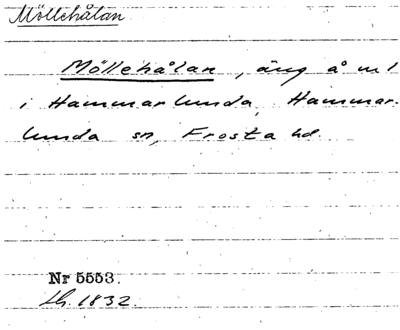 Möllehålan
Möllehålan, äng å nr 1
i Hammarlunda, Hammar-
lunda sn, Frosta hd.
Nr 5553.
Lh. 1832.